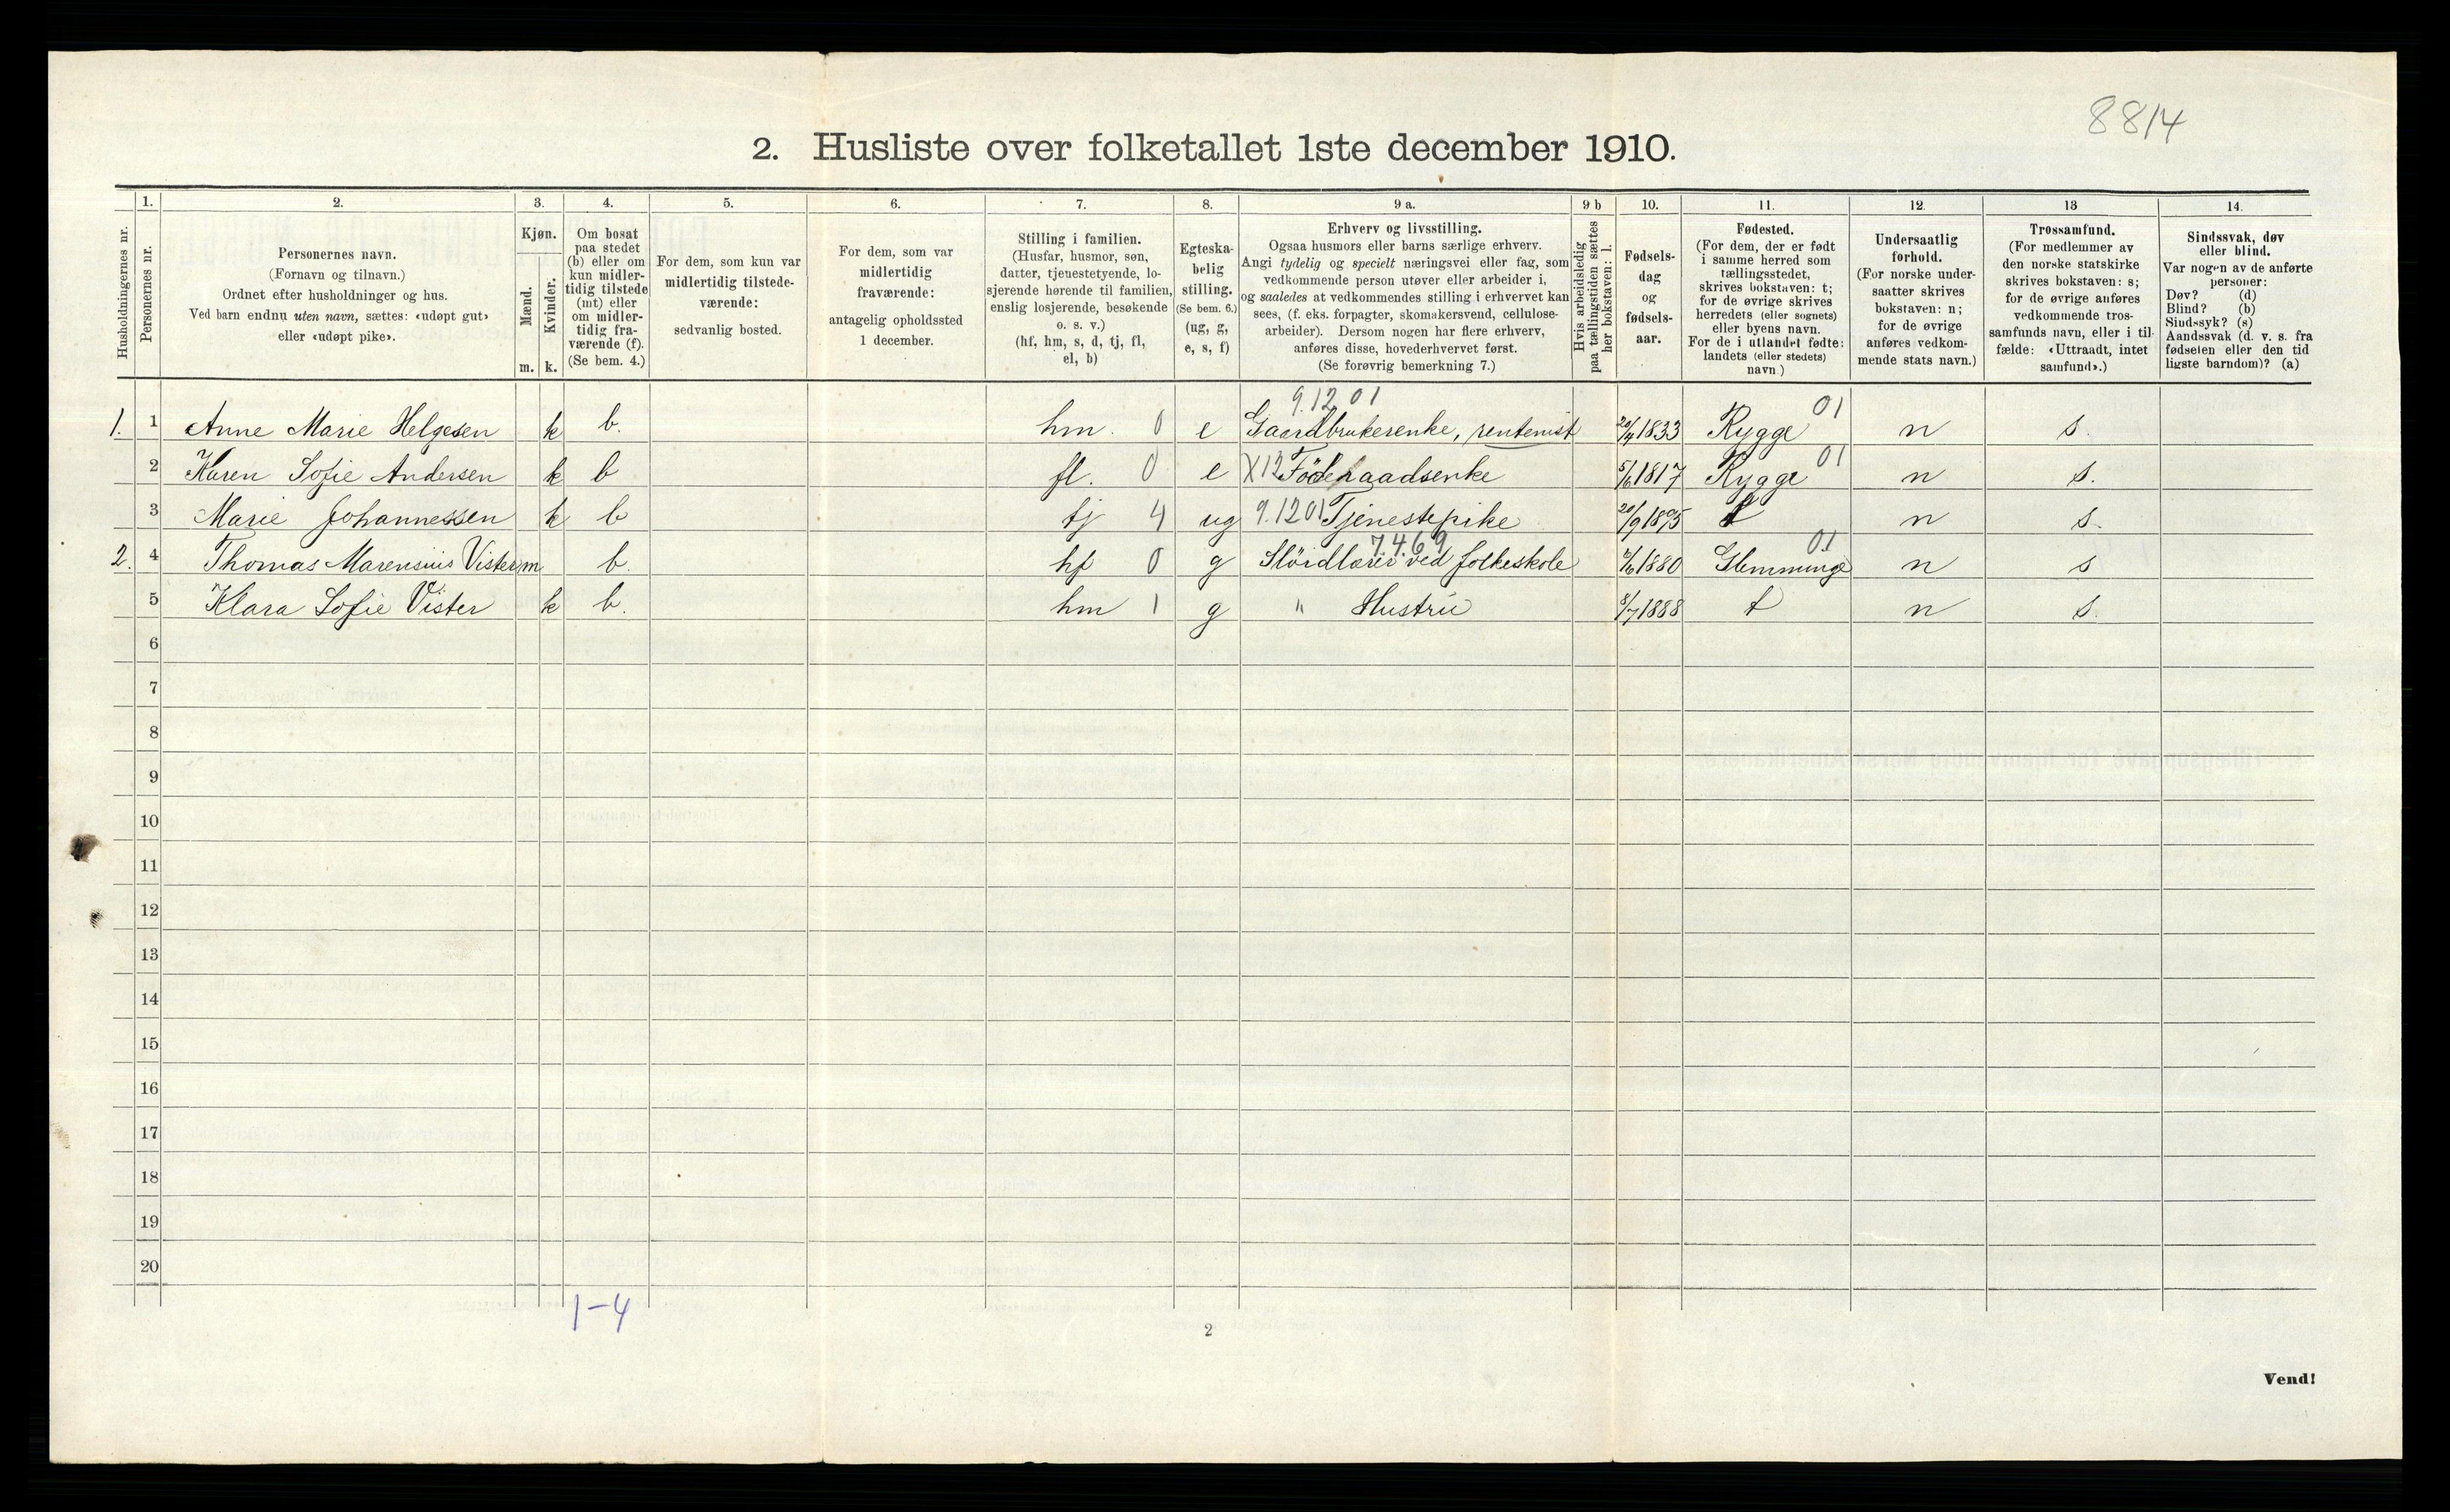 8814
2. Husliste over folketallet 1ste december 1910.
Husholdningernes nr.
1.
Personernes nr.
2.
Personernes navn.
(Fornavn og tilnavn.)
Ordnet efter husholdninger og hus.
Ved barn endnu uten navn, sættes: «udøpt gut»
eller «udøpt pike».
3.
Kjøn.
Mænd.
Kvinder.
m. k.
4.
Om bosat
paa stedet
(b) eller om
kun midler-
tidig tilstede
(mt) eller
om midler-
tidig fra-
værende (f).
(Se bem. 4.)
5.
For dem, som kun var
midlertidig tilstede-
værende:
sedvanlig bosted.
6.
For dem, som var
midlertidig
fraværende:
antagelig opholdssted
1 december.
7.
Stilling i familien.
(Husfar, husmor, søn,
datter, tjenestetyende, lo-
sjerende hørende til familien,
enslig losjerende, besøkende
o. s. v.)
(hf, hm, s, d, tj, fl,
el, b)
8.
Egteska-
belig
stilling.
(Se bem. 6.)
(ug, g,
e, s, f)
9 a.
Erhverv og livsstilling.
Ogsaa husmors eller barns særlige erhverv.
Angi tydelig og specielt næringsvei eller fag, som
vedkommende person utøver eller arbeider i,
og saaledes at vedkommendes stilling i erhvervet kan
sees, (f. eks. forpagter, skomakersvend, cellulose-
arbeider). Dersom nogen har flere erhverv,
anføres disse, hovederhvervet først.
(Se forøvrig bemerkning 7.)
9 b
Hvis arbeidsledig
paa tællingstiden sættes
her bokstaven: l.
10.
Fødsels-
dag
og
fødsels-
aar.
11.
Fødested.
(For dem, der er født
i samme herred som
tællingsstedet,
skrives bokstaven: t;
for de øvrige skrives
herredets (eller sognets)
eller byens navn.
For de i utlandet fødte:
landets (eller stedets)
navn.)
12.
Undersaatlig
forhold.
(For norske under-
saatter skrives
bokstaven: n;
for de øvrige
anføres vedkom-
mende stats navn.)
13
Trossamfund.
(For medlemmer av
den norske statskirke
skrives bokstaven: s;
for de øvrige anføres
vedkommende tros-
samfunds navn, eller i til-
fælde: «Uttraadt, intet
samfund».)
14.
Sindssvak, døv
eller blind.
Var nogen av de anførte
personer:
Døv? (d)
Blind? (b)
Sindssyk? (s)
Aandssvak (d. v. s. fra
fødselen eller den tid
ligste barndom)? (a)
9.12 01
1. 1 Anne Marie Helgesen k b. hm. 0 e Gaardbrukerenke, rentenist 20/4 1833 Rygge 01 n s.
2 Karen Sofie Andersen k b fl. 0 e X12 Föderaadsenke 5/6 1817 Rygge 01 n s.
3 Marie Johannessen k b tj 4 ug 9.1201 Tjenestepike 20/9 1895 t n s.
7469
2. 4 Thomas Marensius Vister m b. hf 0 g Slöidlærer ved folkeskole /6 1880 Glemminge 01 n s
5 Klara Sofie Vister k b. hm 1 g " Hustru 8/7 1888 t n s.
6
7
8
9
10
11
12
13
14
15
16
17
18
19
20
1-4
2
Vend!